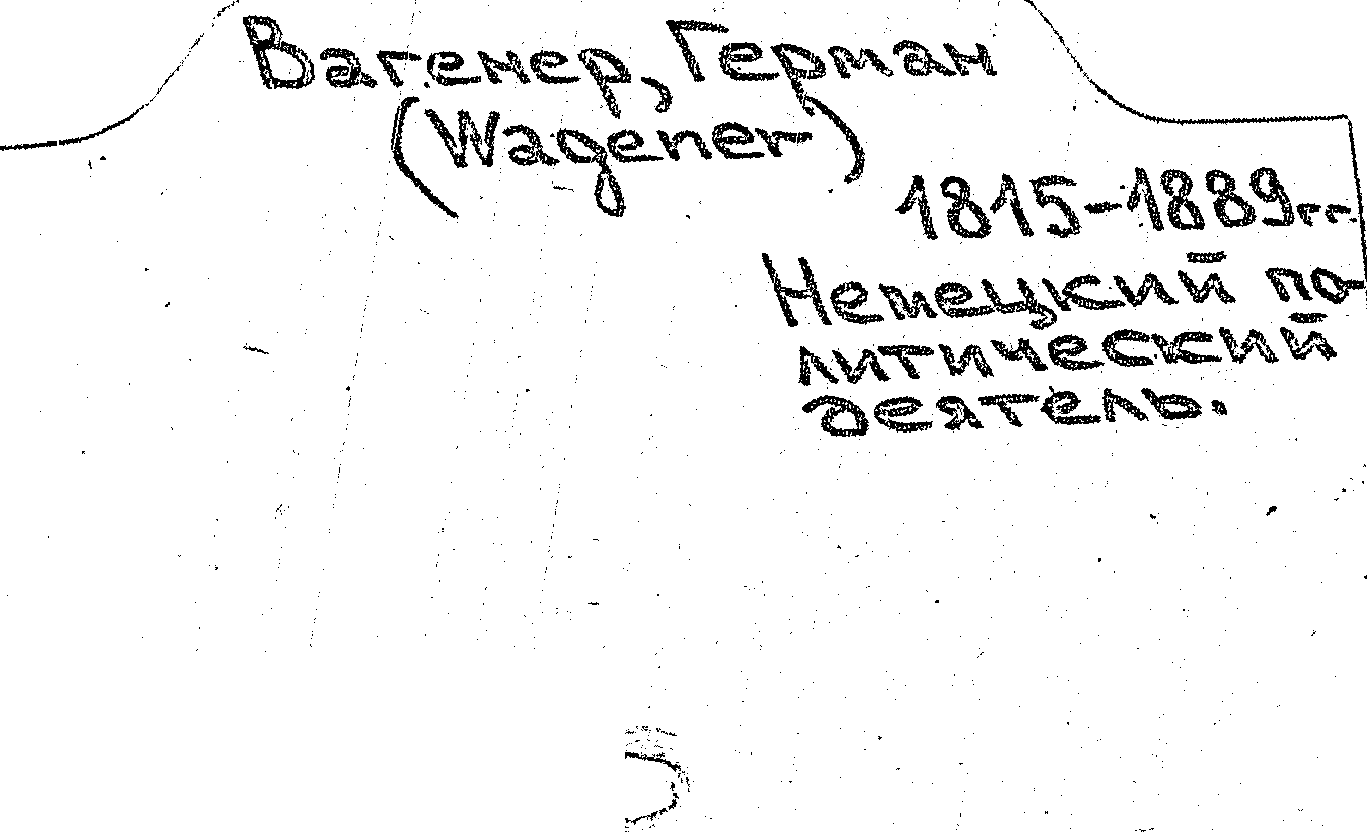 Вагенер, Герман
(Wagener)
1815-1889гг.
Немецкий по-
литический
деятель.